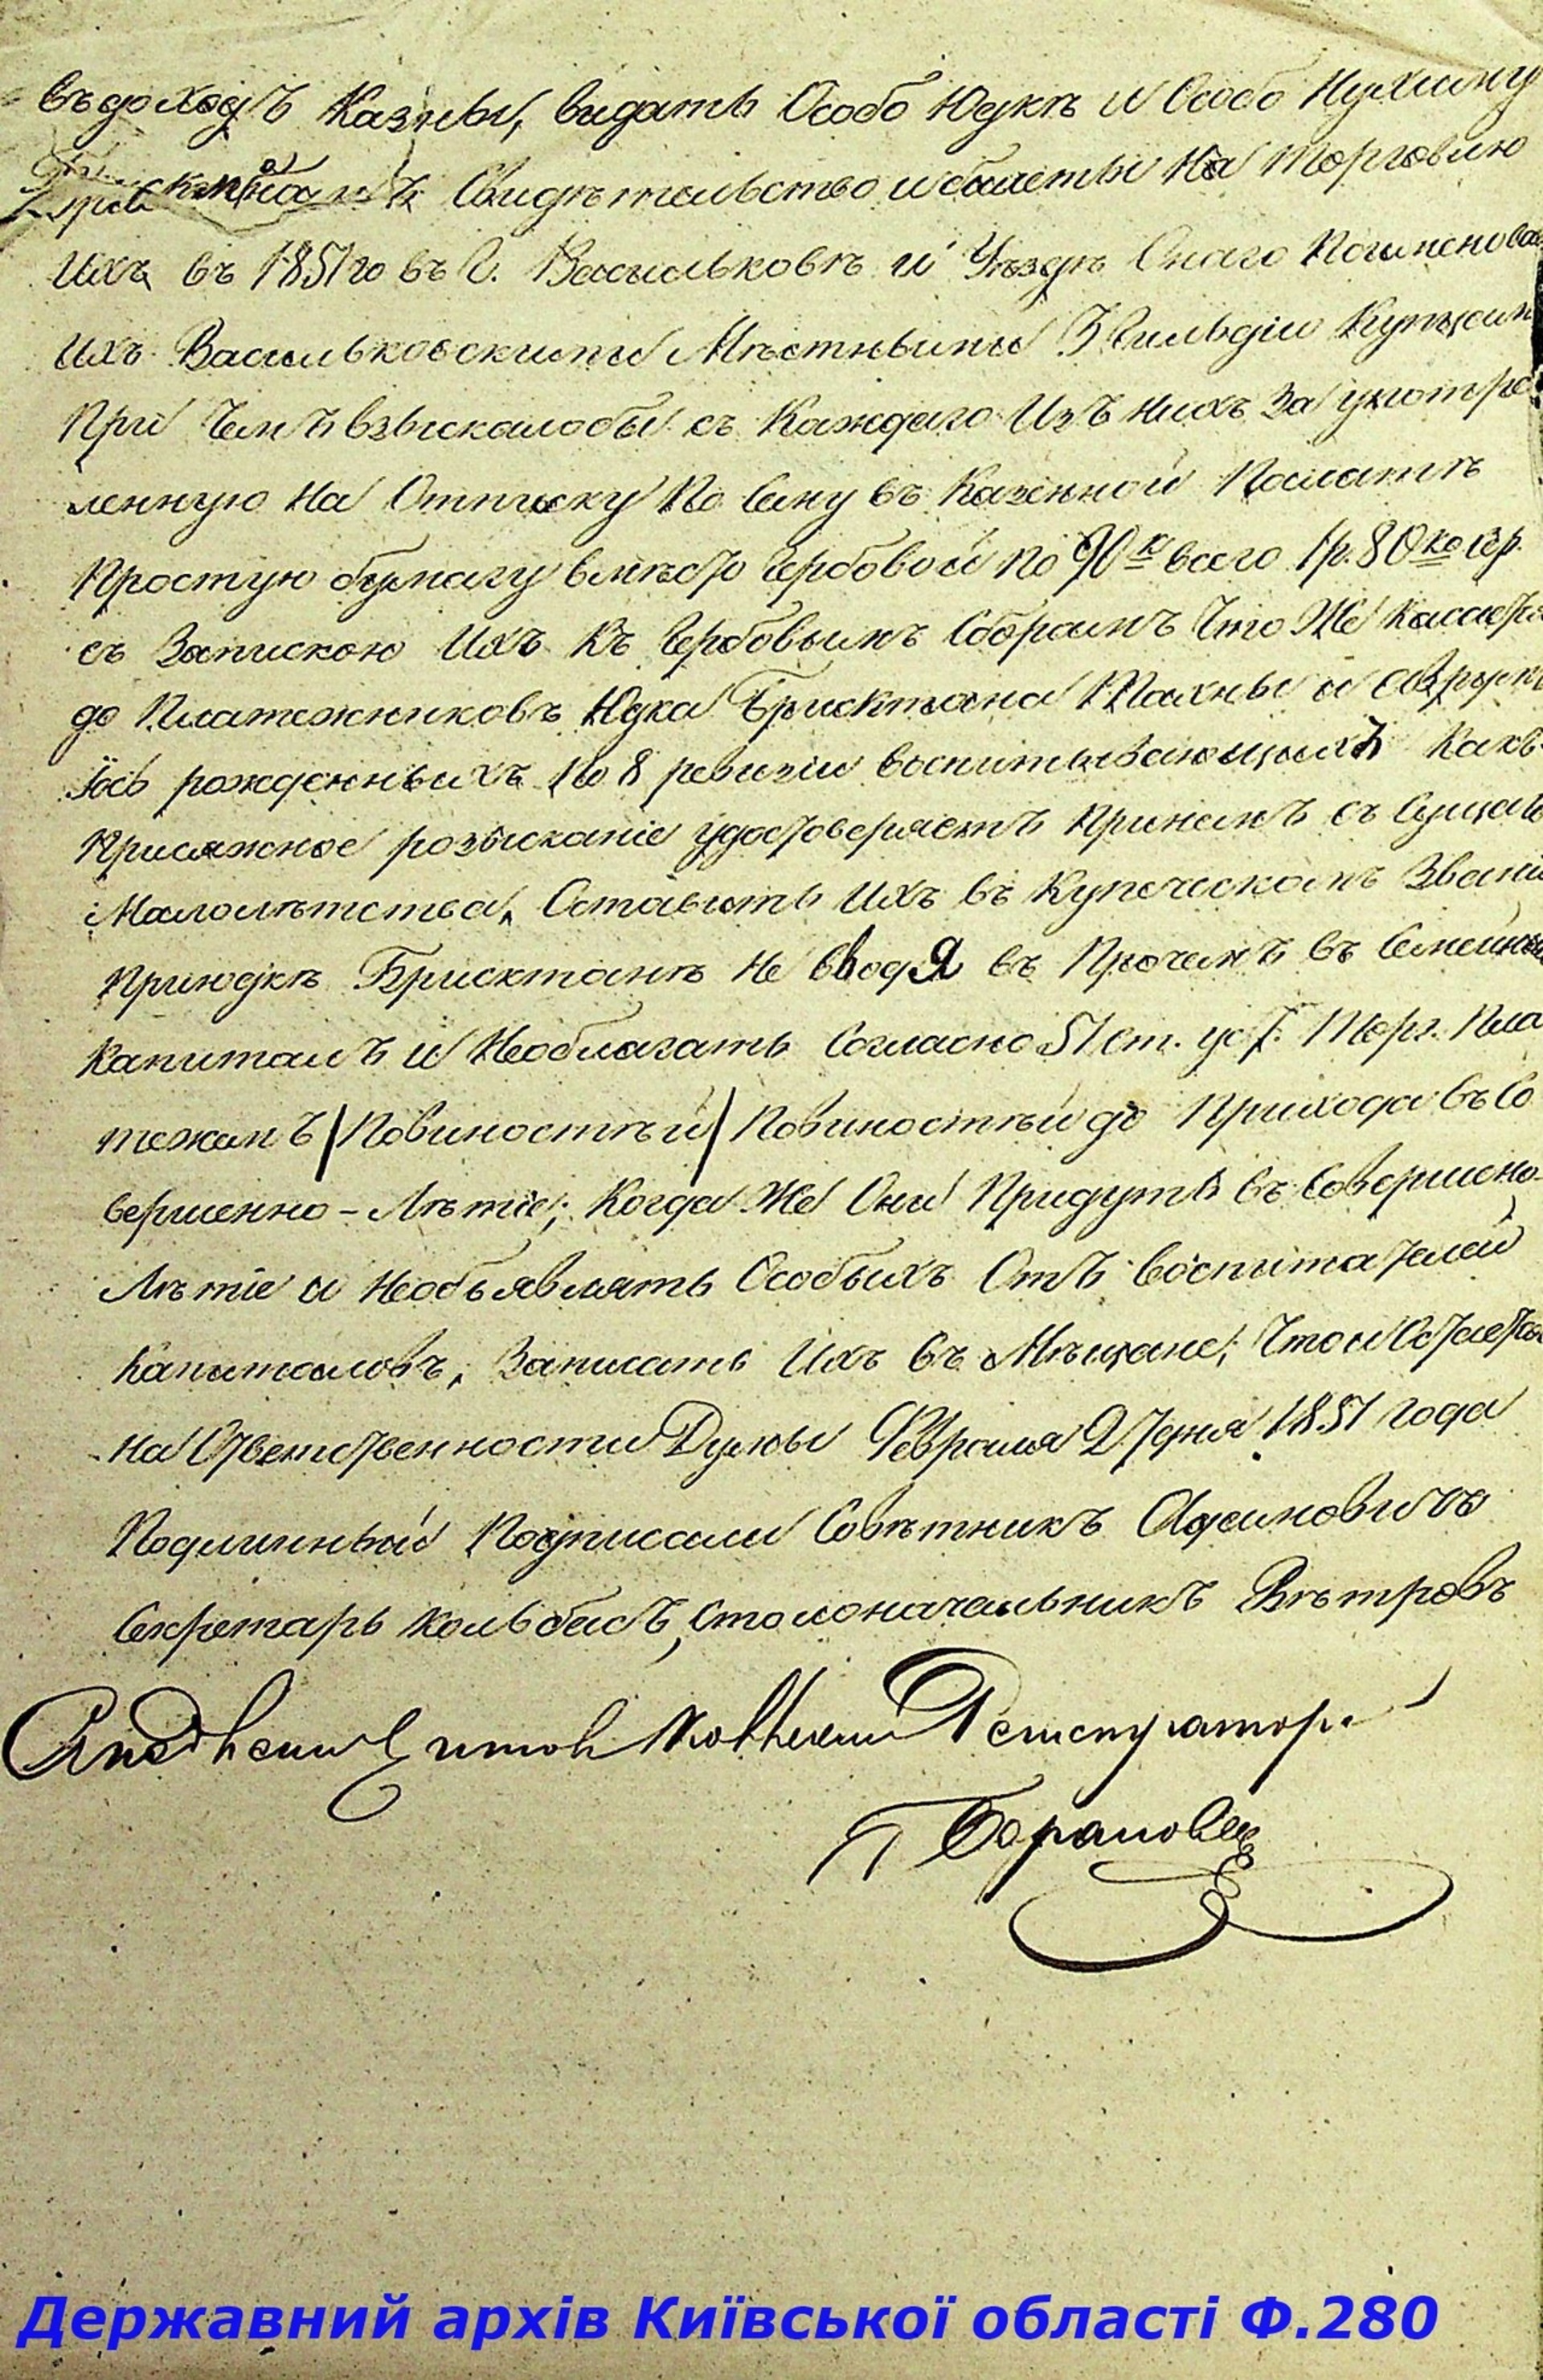 въ доходъ Казны, видать Особо Юдкѣ и Особо Нухиму
Свидѣтельство и билеты На торговлю
Ихъ въ 1851го въ Г. Васильковѣ и Уѣздѣ Онаго Поименова
Ихъ Васильковскими Мѣстными 3 Гильдіи Купцами
При Чемъ взыскалобы съ Каждаго Изъ нихъ За употре
ленную На Отписку По Сему въ Казенной Палатѣ
Простую бумагу вмѣсто Гербовой по 90к всего 1р. 80ко сер.
съ Запискою Ихъ Къ Гербовымъ Сборамъ Что Же Касается
до Платежниковъ Юдка Брисктмана
рожденныхъ По 8 ревизіи воспитывающихъ Какъ
Присяжное розысканіе удостоверяетъ
Малолѣтства, Оставить Ихъ въ Купеческомъ Званіи
При Юдкѣ Брисктманѣ Не вводя въ Прочемъ въ Семейный
Капиталъ и Необлагать Согласно 51 ст. уст. Торг. Пла
тежамъ/Повиностѣй/Повиностѣй до Прихода въ Со
вершенно-Лѣтіе; Когда Же Они Придутъ въ Совершено-
Лѣтіе и Необъявлять Особыхъ Отъ воспитателей
Капиталовъ, Записать Ихъ въ Мѣщане; Что и Остается
На Ответственности Думы Февраля 27 дня 1851 года
Подлинный Подписали Совѣтникъ
Секретарь Кольбасъ, Столоначальникъ Вѣтровъ
Регистраторъ
Державний архів Київської області Ф.280